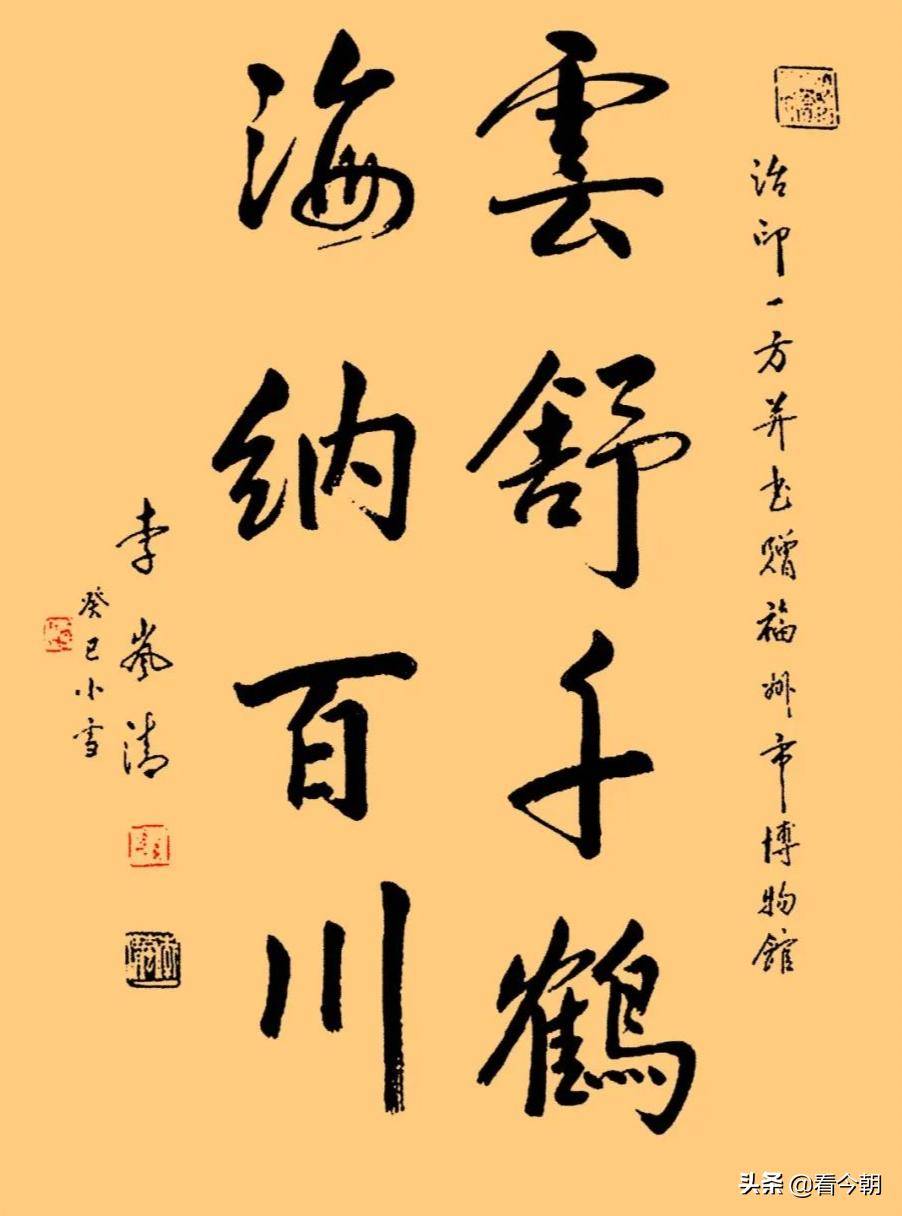 治印一方并书赠福州市博物馆
雲舒千鶴
海纳百川
李岚清
癸巳小雪
头条 @看今朝